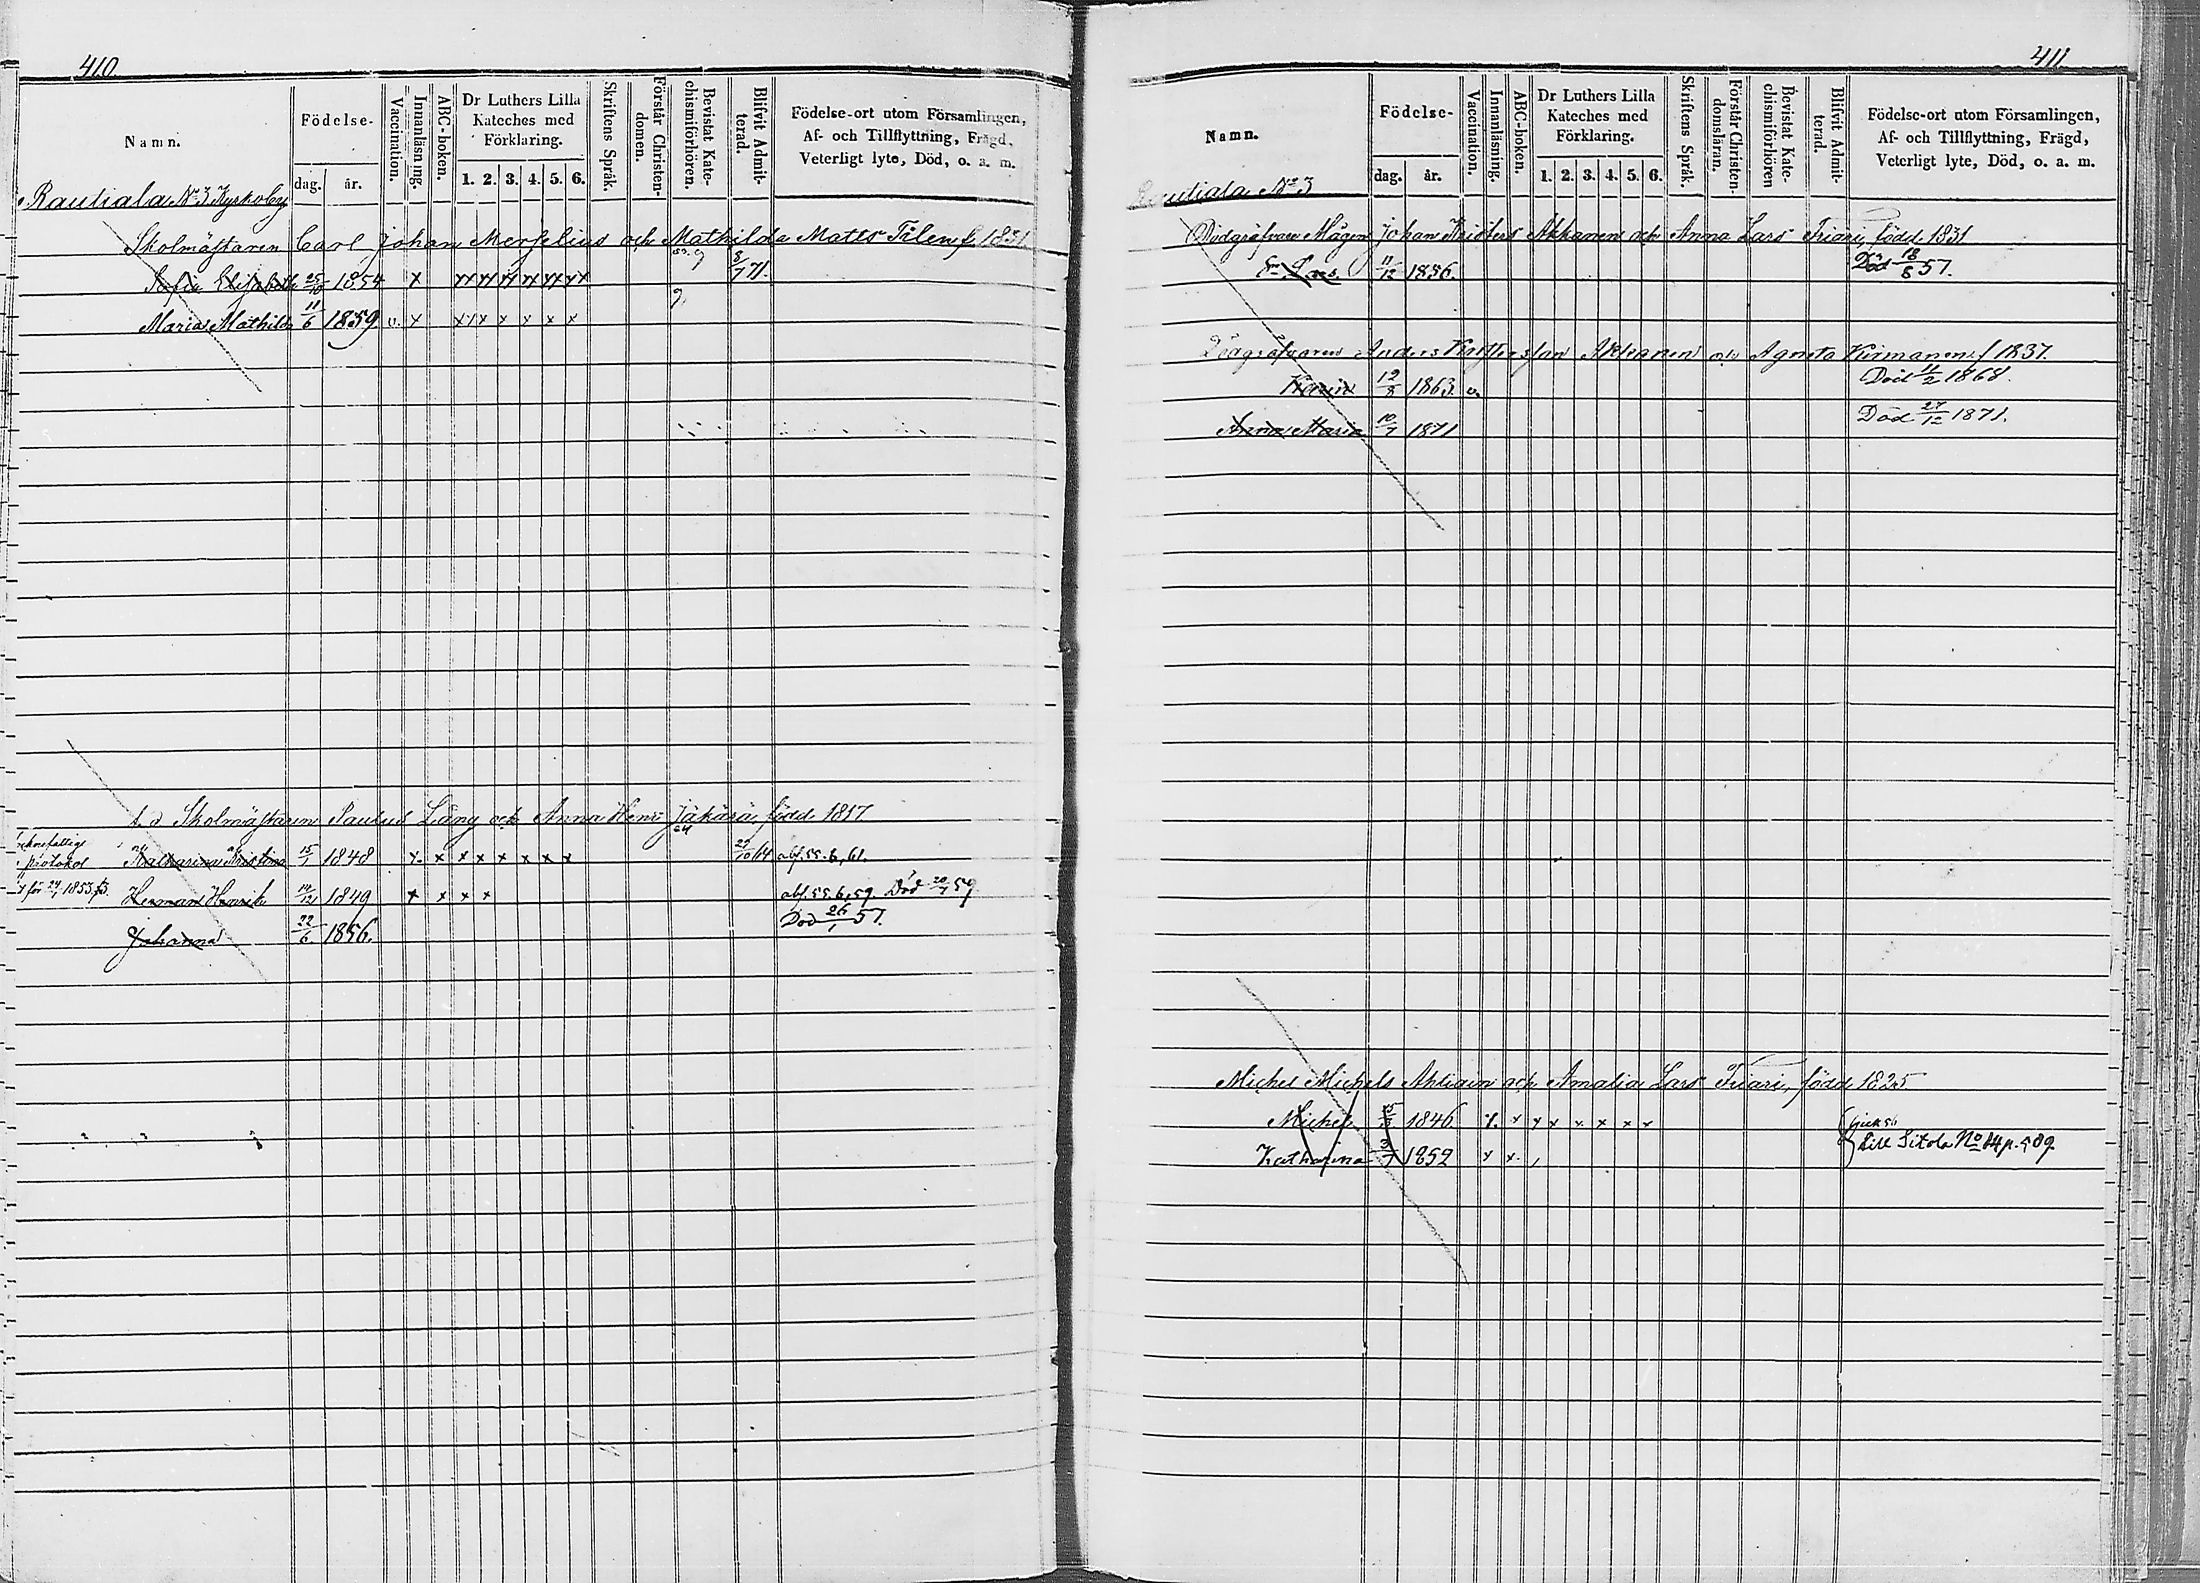 410.
Namn.
Födelse-
dag. år.
Vaccination.
Innanläsning.
ABC-boken.
Dr Luthers Lilla Kateches med Förklaring.
1. 2. 3. 4. 5. 6.
Skriftens Språk.
Förstår Christen-domen.
Bevistat Kate-chismiförhören.
Blifvit Admit-terad.
Födelse-ort utom Församlingen,
Af- och Tillflyttning, Frägd,
Veterligt lyte, Död, o. a. m.
Rautiala No 3 Kyrkoby
Skolmästaren Carl Johan och Mathilda Matts f. 1831
Sofia Elisabeth 25/10 1854 x xx xx xx xx xx xx 8/7 71.
Maria Mathilda 11/6 1859 v. x xx x x x x x
t. d Skolmästaren Paulus Lång och Anna Henr. född 1817
protokol Katharina Kristina 15/1 1848 x x x x x x x x abs. 55. 6, 61.
för 1853. Herman Henrik 14/12 1849 x x x x abs. 55. 6, 59. Död 20/7 59
Johanna 22/6 1856. Död 26/1 57.
411.
Namn.
Födelse-
dag. år.
Vaccination.
Innanläsning.
ABC-boken.
Dr Luthers Lilla Kateches med Förklaring.
1. 2. 3. 4. 5. 6.
Skriftens Språk.
Förstår Christen-domsläran.
Bevistat Kate-chismiförhören
Blifvit Admit-terad.
Födelse-ort utom Församlingen,
Af- och Tillflyttning, Frägd,
Veterligt lyte, Död, o. a. m.
Rautiala No 3
Dödgräfvare Mågen Johan Kristers Akkanen och Anna Lars född 1831
Lars. 11/12 1856. Död 18/8 57.
Dödgräfvaren Anders Akkanen och Agneta f 1837.
Karin 12/8 1863. v. Död 11/2 1868.
Anna Maria 10/7 1871 Död 27/12 1871.
Michel Michels och Amalia Lars född 1825
Michel 1846 x x x x x x x
Katharina 3/7 1852 x x till Sitola No 14 p. 509.